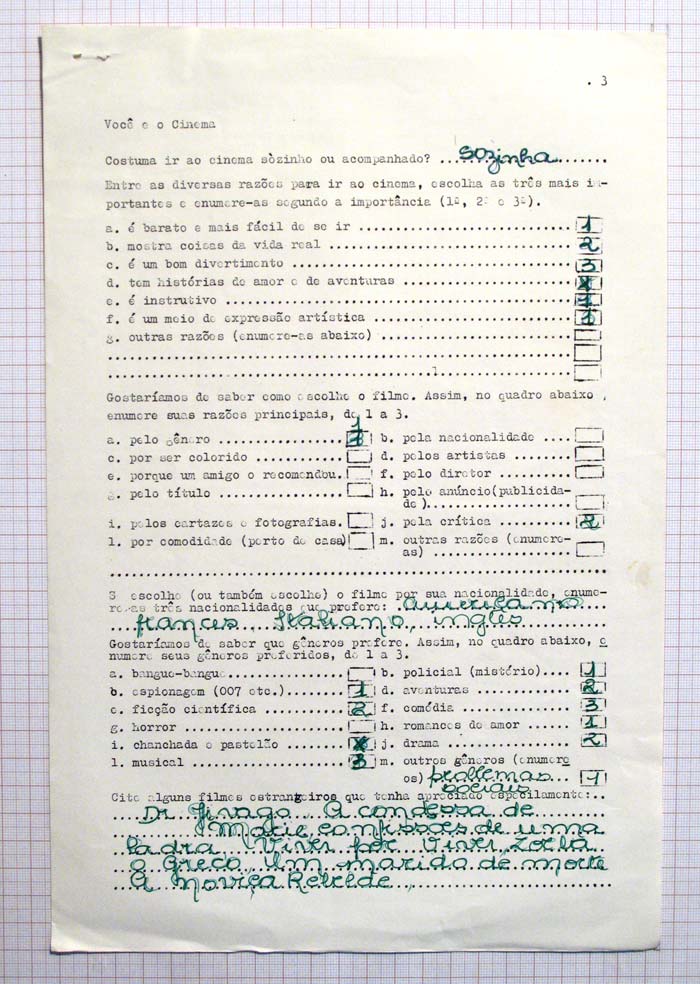 . 3
Você e o Cinema
Costuma ir ao cinema sòzinho ou acompanhado? ...sozinha........
Entre as diversas razões para ir ao cinema, escolha as três mais im-
portantes e enumere-as segundo a importância (1ª, 2ª e 3ª).
a. é barato e mais fácil de se ir .............................. 1
b. mostra coisas da vida real ................................... 2
c. é um bom divertimento ........................................ 3
d. tem histórias de amor e de aventuras .........................
e. é instrutivo ................................................. 1
f. é um meio de expressão artística ............................. 1
g. outras razões (enumere-as abaixo) ............................
................................................................
................................................................
Gostaríamos de saber como escolhe o filme. Assim, no quadro abaixo ,
enumere suas razões principais, de 1 a 3.
1
a. pelo gênero ................ b. pela nacionalidade ....
c. por ser colorido ........... d. pelos artistas ........
e. porque um amigo o recomendou. f. pelo diretor ..........
g. pelo título ................ h. pelo anúncio(publicida-
de )..................
i. pelos cartazes e fotografias. j. pela crítica .......... 2
l. por comodidade (perto de casa) m. outras razões (enumere-
as) ..................
................................................................
S escolhe (ou também escolhe) o filme por sua nacionalidade, enume-
re-as três nacionalidades que prefere: americano
francês, Italiano, inglês
Gostaríamos de saber que gêneros prefere. Assim, no quadro abaixo, e
numere seus gêneros preferidos, de 1 a 3.
a. bangue-bangue............... b. policial (mistério).... 1
b. espionagem (007 etc.)....... 1 d. aventuras ............. 2
e. ficção científica .......... 2 f. comédia ............... 3
g. horror ..................... h. romances de amor ...... 1
i. chanchada e pastelão ....... j. drama ................. 2
l. musical .................... 3 m. outros gêneros (enumere
os) problemas... 1
sociais
Cite alguns filmes estrangeiros que tenha apreciado especilamente:..
Dr Jivago. A condessa de
confissões de uma
ladra. Viver por Viver, Zorba
o Greco, Um marido de morte
A Noviça Rebelde